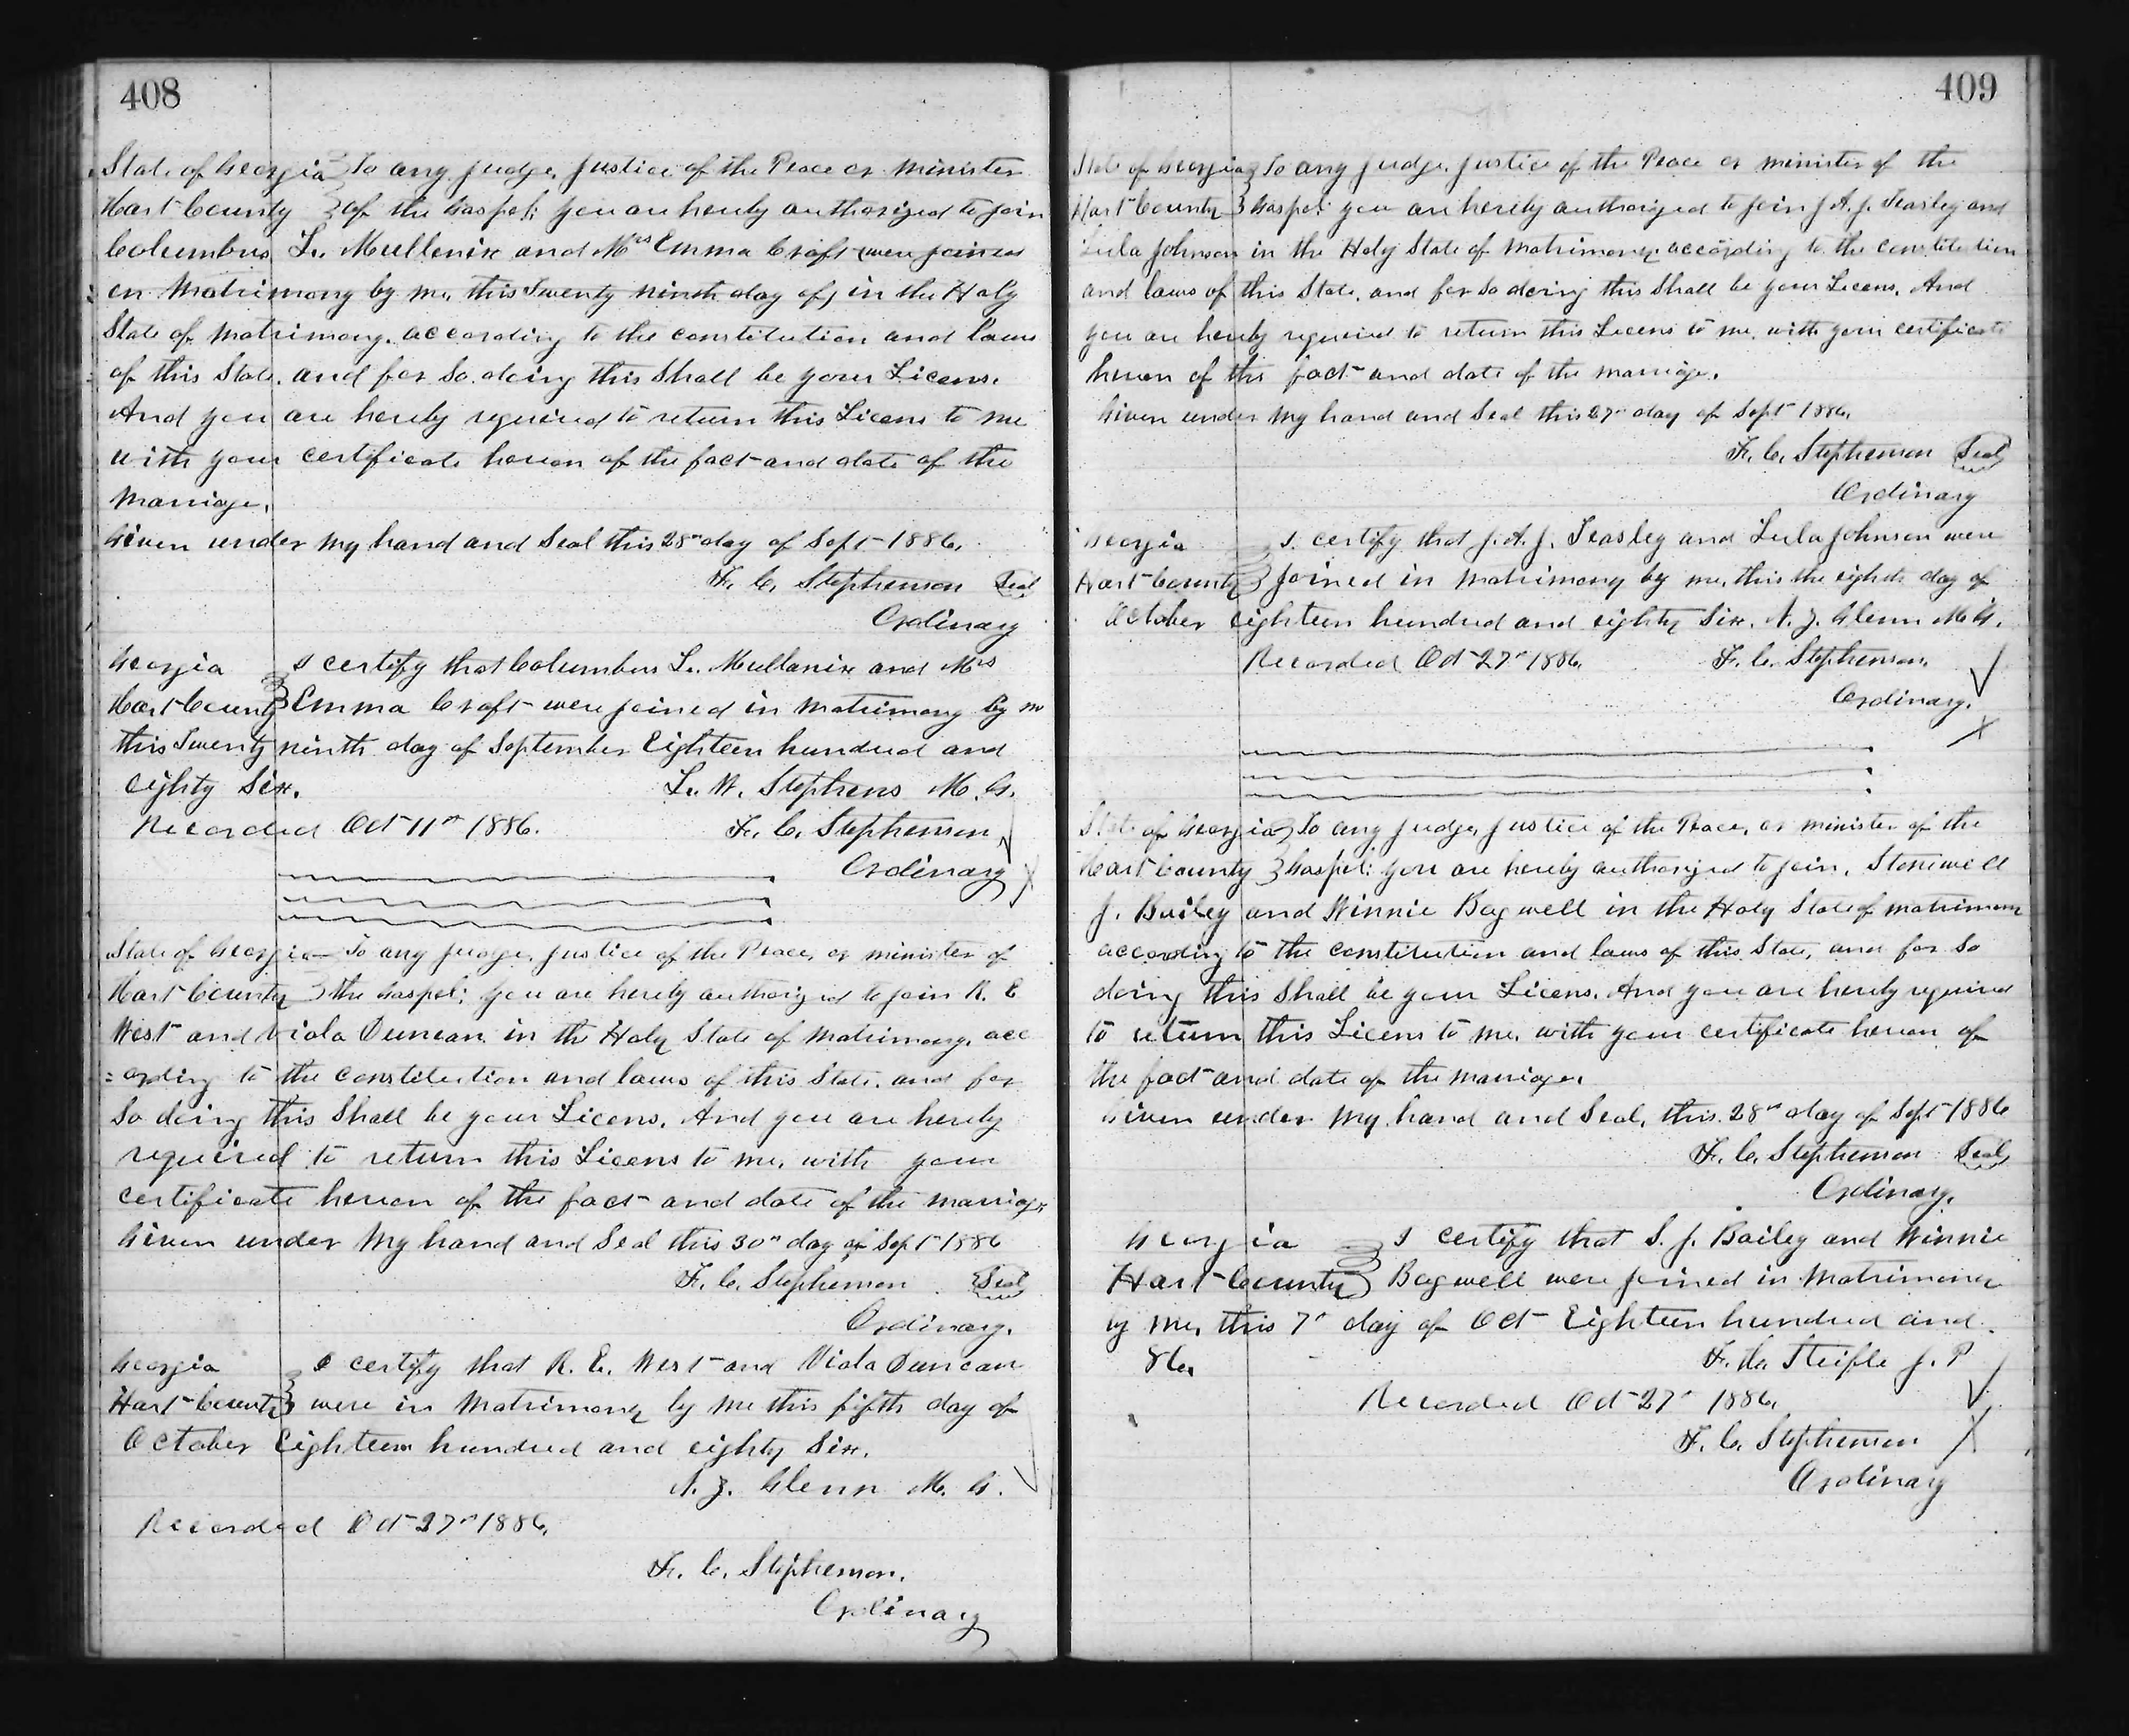 408
State of Georgia } To any judge, Justice of the Peace or Minister
Hart County } of the Gospel; you are hereby authorized to join
Columbus L. Mullenix and Mrs Emma Craft (were joined
in Matrimony by me, this Twenty ninth day of) in the Holy
State of matrimony. according to the constitution and laws
of this State. and for so doing this shall be your Licens.
And you are hereby required to return this Licens to me
with your certificate hereon of the fact and date of the
Marriage.
Given under my hand and Seal this 28th day of Sept 1886.
F. C. Stephenson Seal
Ordinary
Georgia } I certify that Columbus L. Mullanix and Mrs
Hart County } Emma Craft were joined in matrimony by m
this Twenty ninth day of September Eighteen hundred and
eighty Six. L. W. Stephens M. G.
Recorded Oct 11th 1886. F. C. Stephenson
Ordinary
State of Georgia To any judge, justice of the Peace, or minister of
Hart County } the Gospel; you are hereby authorized to join R. E
West and Viola Duncan in the Holy State of Matrimony. acc
=ording to the constitution and laws of this State. and for
so doing this shall be your Licens. And you are hereby
required to return this Licens to me, with your
certificate hereon of the fact and date of the marriage.
Given under my hand and Seal this 30th day of Sept 1886
F. C. Stephenson Seal
Ordinary.
Georgia } I certify that R. E. West and Viola Duncan
Hart County } were in Matrimony by me this fifth day of
October Eighteen hundred and eighty Six.
A. J. Glenn M. G.
Recorded Oct 27th 1886.
F. C. Stephenson.
Ordinary
409
State of Georgia } To any judge. justice of the Peace or minister of the
Hart County } Gospel: you are hereby authorized to join J. A. J. Teasley and
Lula Johnson in the Holy State of Matrimony according to the constitution
and laws of this State. and for so doing this shall be your Licens. And
you are hereby required to return this Licens to me. with your certificate
hereon of this fact and date of the marriage.
Given under my hand and Seal this 27th day of Sept 1886.
F. C. Stephenson Seal
Ordinary
Georgia } I. certify that J. A. J. Teasley and Lula Johnson were
Hart County } joined in matrimony by me, this the eighth day of
October eighteen hundred and eighty Six. A. J. Glenn M. G.
Recorded Oct 27th 1886. F. C. Stephenson.
Ordinary.
State of Georgia } To any judge, justice of the Peace, or minister of the
Hart County } Gospel: you are hereby authorized to join, Stonewell
J. Bailey and Winnie Bagwell in the Holy State of matrimony
according to the constitution and laws of this State, and for so
doing this shall be your Licens. And you are hereby required
to return this Licens to me, with your certificate hereon of
the fact and date of the marriage.
Given under my hand and Seal, this 28th day of Sept 1886
F. C. Stephenson Seal
Ordinary.
Georgia } I certify that S. J. Bailey and Winnie
Hart County } Bagwell were joined in Matrimony
by me, this 7th day of Oct Eighteen hundred and
86. J. P
Recorded Oct 27th 1886.
F. C. Stephenson
Ordinary